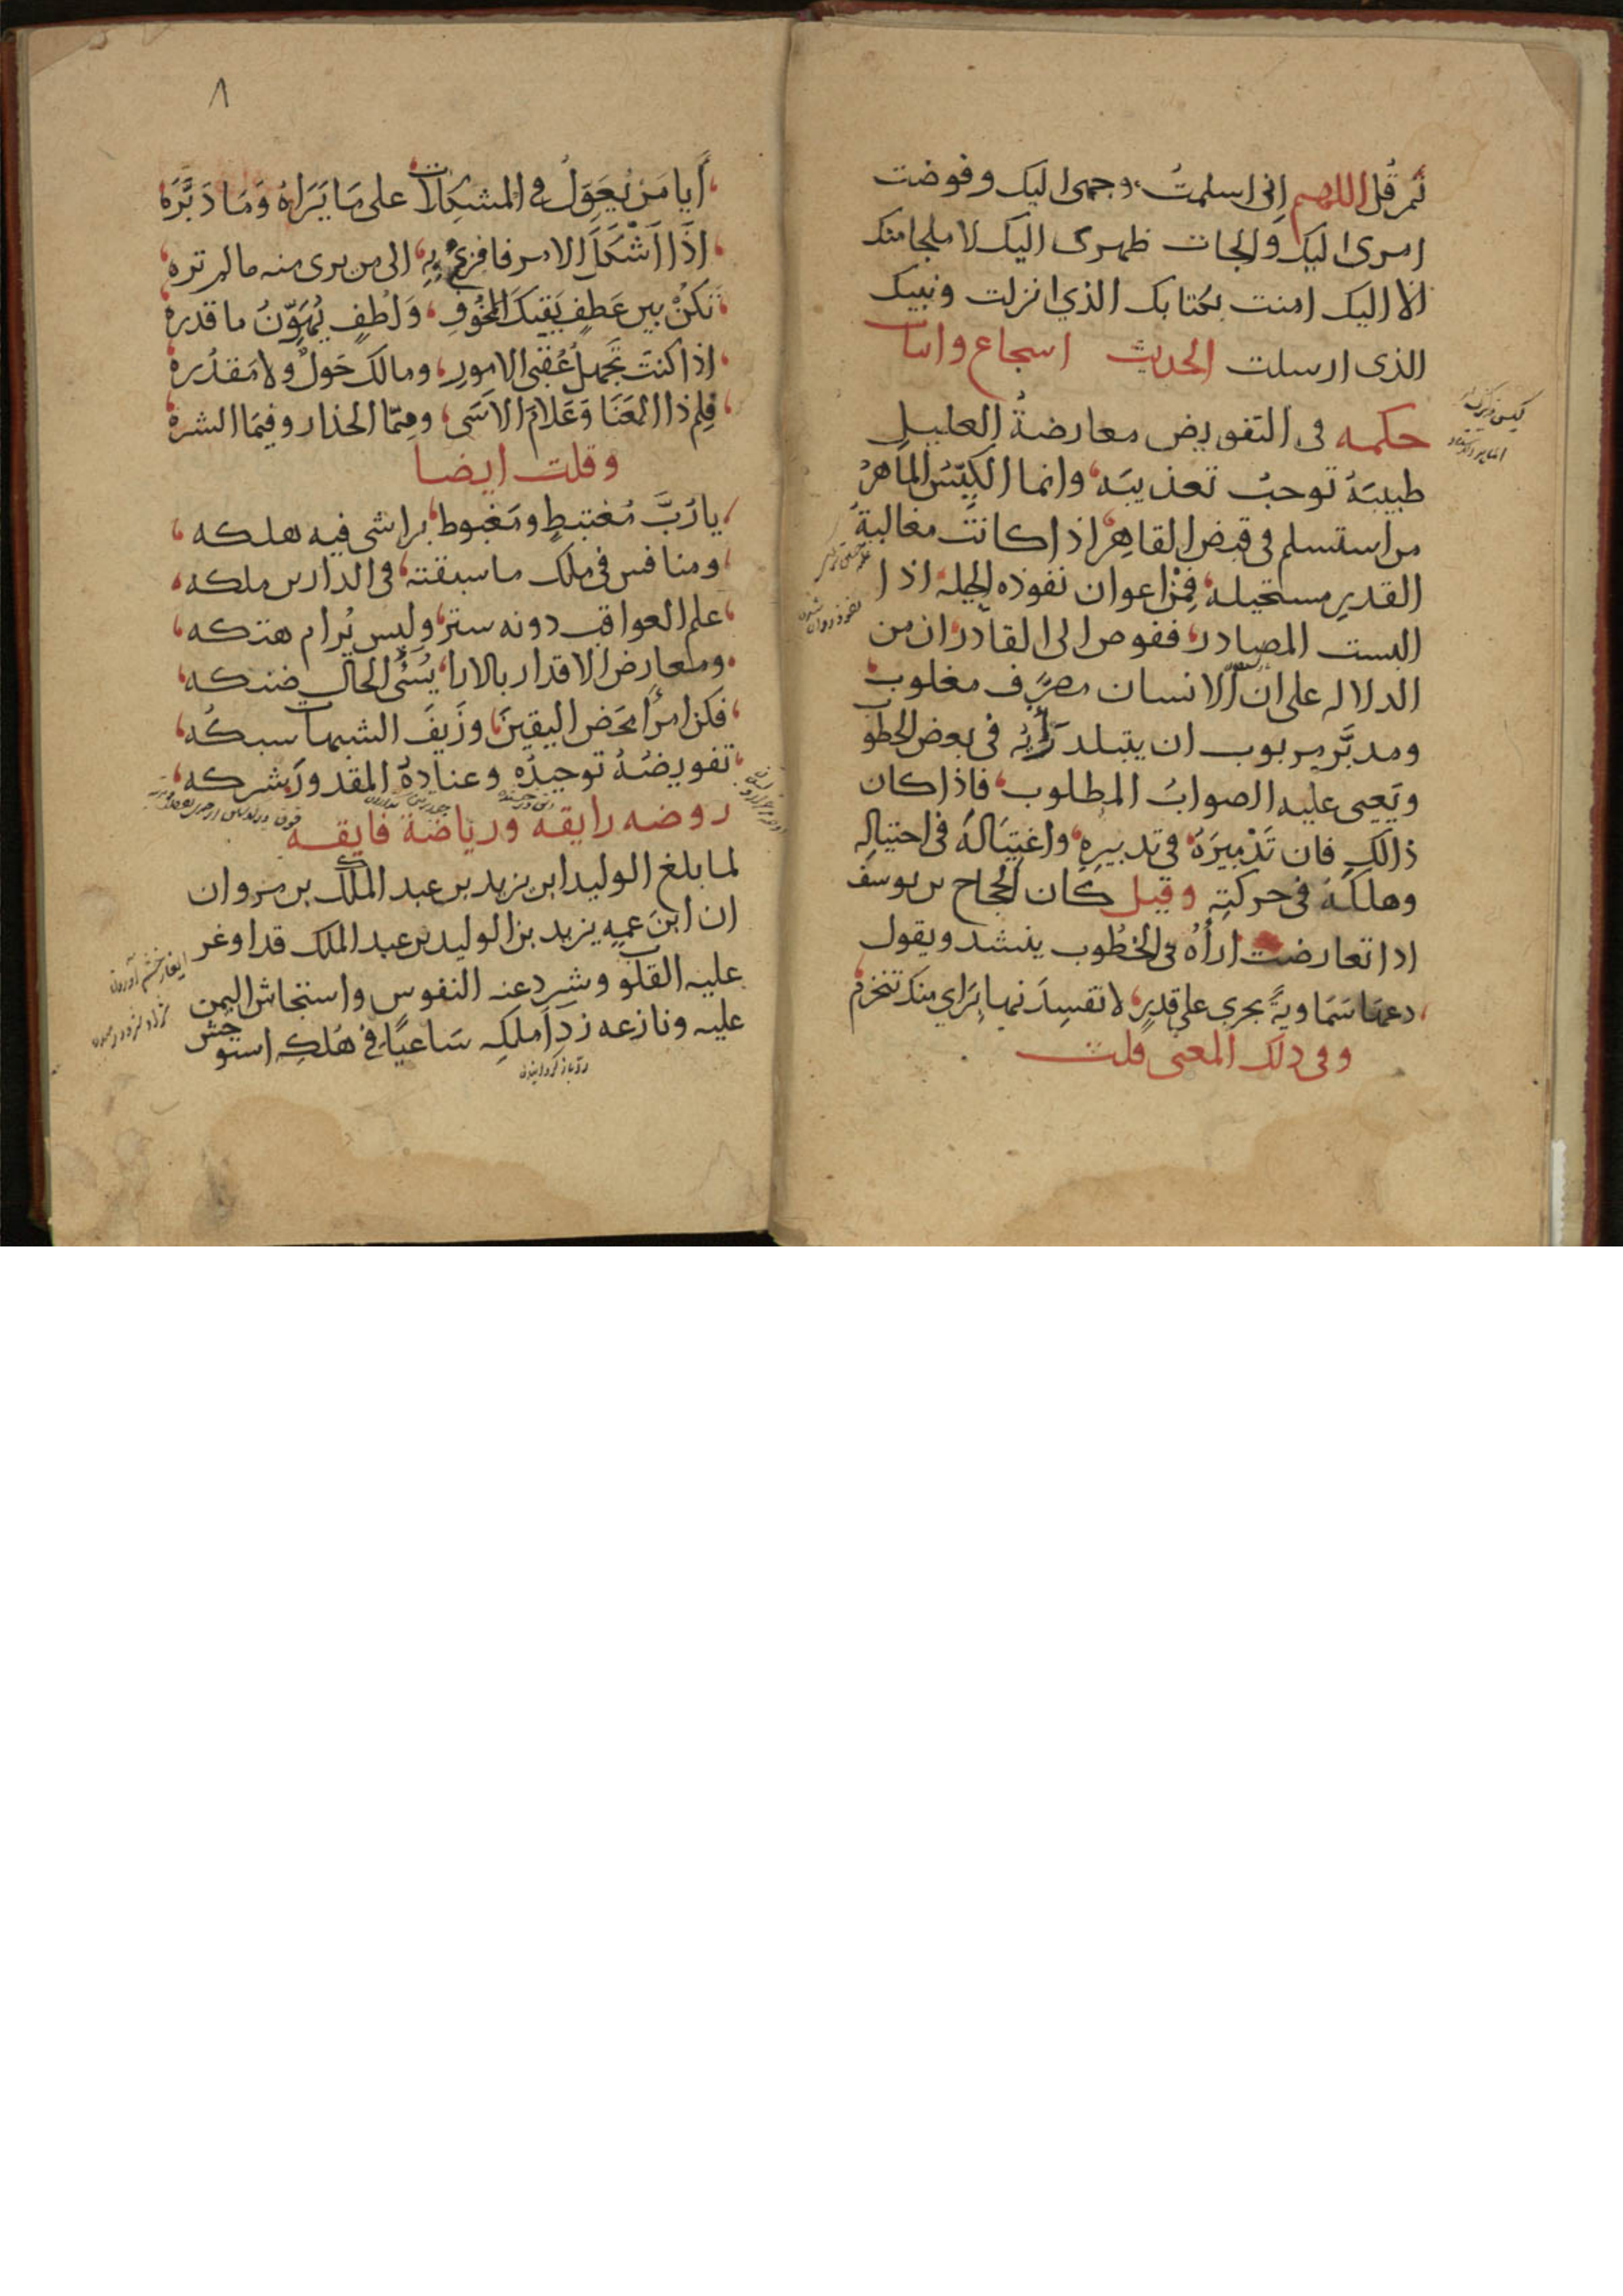 ثم قل اللهم اني اسلمتُ وجهى اليك وفوضت
امرى اليك والجات ظهرى اليك لا ملجا منك
الا اليك امنت بكتابك الذي انزلت ونبيك
الذى ارسلت الحديث اسجاع وابيات
حكمه فى التفويض معارضةُ العليلِ
طبيبَهُ توجبُ تعذيبَه وانما الكيّسُ الماهرُ
من استسلم فى قبض القاهِر اذا كانت مغالبةُ
القديرِ مستحيله فمن اعوان نفوذه الحيله اذا
البست المصادر ففوض الى القادر ان من
الدلاله على ان الانسان مصرَّف مغلوب
ومدبَّر مربوب ان يتبلد رَأيُه فى بعض الخطوب
ويَعيى عليه الصوابُ المطلوب فاذا كان
ذالك فان تَدْمِيرَهُ فى تدبيرِه واغتِيَالَهُ فى احتيالِه
وهلكَهُ فى حركتِه وقيل كان الحجاج بن يوسف
اذا تعارضت اراهُ فى الخطُوب ينشد ويقول
دعها سَمَاويةً تجري على قدرٍ لا تفسِدَنها برَاي منك تنخزم
وفى ذلك المعنى قلت
٨
أَيا مَن يُعَوِّلُ فى المشكِلات على مَا يَرَاهُ وَمَا دَبَّرَه
اذَا اَشْكَلَ الامر فافزع بِهِ الى من يرى منه ما لم تره
تكنْ بين عَطفٍ يَقيكَ المَخُوفِ وَلطُفٍ يُهَوِّنُ ما قدره
اذا كنتَ تَجهلُ عُقبى الامورِ ومالك حَولٌ ولا مَقدُره
فلِم ذا العَنَا وَعَلامَ الاَسَى ومِمّا الحذار وفيمَا الشره
وقلت ايضا
يا رُبَّ مُغتبطٍ ومَغبوط برا شى فيه هلكه
ومنافس فى ملك ما سبقته فى الدارين ملكه
علم العواقب دونه ستر وليس يُرام هتكه
ومعارض الاقدار بالارا يُسئُى الحال ضنكه
فكن امرًا مَحَض اليقينَ وزَيفَ الشبهات سبكُه
تفويضُهُ توحيدُه وعنادهُ المقدورَ شركه
روضه رايقه ورياضة فايقه
لما بلغ الوليد ابن يزيد بن عبد الملك بن مروان
ان ابنَ عمِه يزيد بن الوليد بن عبد الملك قد اوغر
عليه القلوب وشرد عنه النفوس واستجاش اليمن
عليه ونازعه ردا ملكِه سَاعيًا فى هُلكِه استوحش